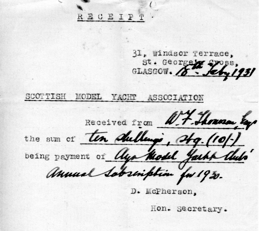 RECEIPT
31, Windsor Terrace,
St. George's Cross,
GLASGOW. 15th July 1931
SCOTTISH MODEL YACHT ASSOCIATION
Received from W. F. Thomson, Esq
the sum of ten shillings, stg (10/-)
being payment of Ayr Model Yacht Club's
Annual Subscription for 1930.
D. McPherson,
Hon. Secretary.